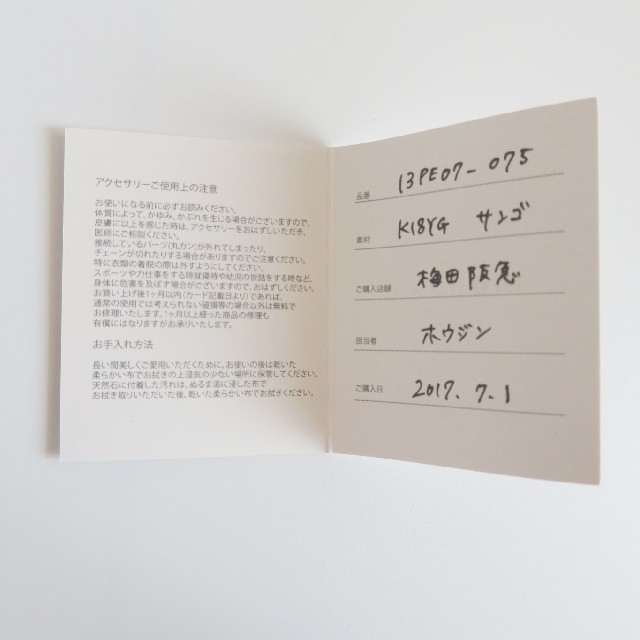 アクセサリーご使用上の注意
お使いになる前に必ずお読みください。
体質によって、かゆみ、かぶれを生じる場合がございますので、
皮膚に以上を感じた時は、アクセサリーをおはずしいただき、
医師にご相談ください。
接続しているパーツ(丸カン)が外れてしまったり、
チェーンが切れたりする場合がありますのでご注意ください。
特に衣類の着脱の際は外すようにしてください。
スポーツや力仕事をする時就寝時や幼児の世話をする時など、
身体に危害を及ぼす場合がございますので、おはずしください。
お買い上げ後1ヶ月以内(カード記載日より)であれば、
通常の使用では考えられない破損等の場合以外は無料で
お修理いたします。1ヶ月以上経った商品の修理も
有償にはなりますがお承りいたします。
お手入れ方法
長い間美しくご愛用いただくために、お使いの後は乾いた
柔らかい布でお拭きの上湿気の少ない場所に保管してください。
天然石に付着した汚れは、ぬるま湯に浸した布で
お拭き取りいただいた後、乾いた柔らかい布でお拭きください。
品番 13PE07-075
素材 K18YG サンゴ
ご購入店舗 梅田阪急
担当者 ホウジン
ご購入日 2017.7.1